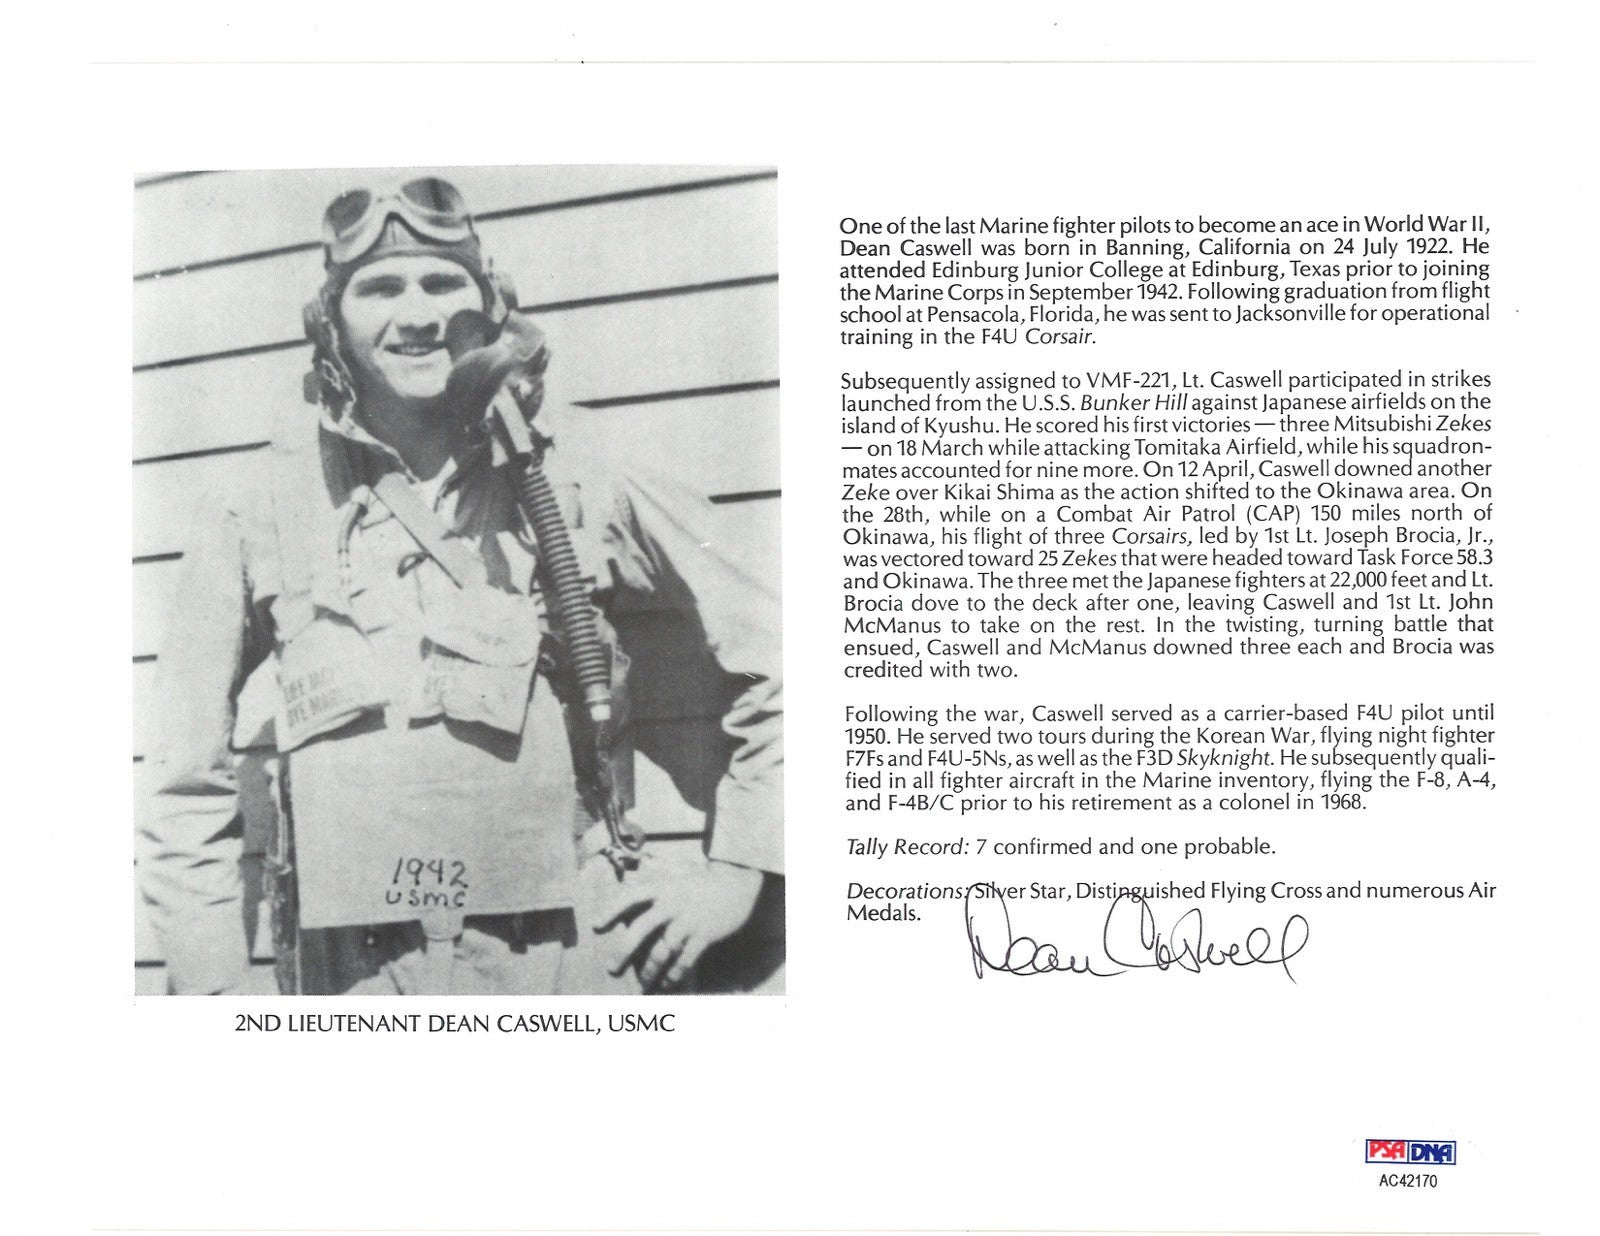 One of the last Marine fighter pilots to become an ace in World War II,
Dean Caswell was born in Banning, California on 24 July 1922. He
attended Edinburg Junior College at Edinburg, Texas prior to joining
the Marine Corps in September 1942. Following graduation from flight
school at Pensacola, Florida, he was sent to Jacksonville for operational
training in the F4U Corsair.
Subsequently assigned to VMF-221, Lt. Caswell participated in strikes
launched from the U.S.S. Bunker Hill against Japanese airfields on the
island of Kyushu. He scored his first victories — three Mitsubishi Zekes
— on 18 March while attacking Tomitaka Airfield, while his squadron-
mates accounted for nine more. On 12 April, Caswell downed another
Zeke over Kikai Shima as the action shifted to the Okinawa area. On
the 28th, while on a Combat Air Patrol (CAP) 150 miles north of
Okinawa, his flight of three Corsairs, led by 1st Lt. Joseph Brocia, Jr.,
was vectored toward 25 Zekes that were headed toward Task Force 58.3
and Okinawa. The three met the Japanese fighters at 22,000 feet and Lt.
Brocia dove to the deck after one, leaving Caswell and 1st Lt. John
McManus to take on the rest. In the twisting, turning battle that
ensued, Caswell and McManus downed three each and Brocia was
credited with two.
Following the war, Caswell served as a carrier-based F4U pilot until
1950. He served two tours during the Korean War, flying night fighter
F7Fs and F4U-5Ns, as well as the F3D Skyknight. He subsequently quali-
fied in all fighter aircraft in the Marine inventory, flying the F-8, A-4,
and F-4B/C prior to his retirement as a colonel in 1968.
Tally Record: 7 confirmed and one probable.
Decorations: Silver Star, Distinguished Flying Cross and numerous Air
Medals.
Dean Caswell
DYE MARKER
1942
USMC
2ND LIEUTENANT DEAN CASWELL, USMC
PSA DNA
AC42170